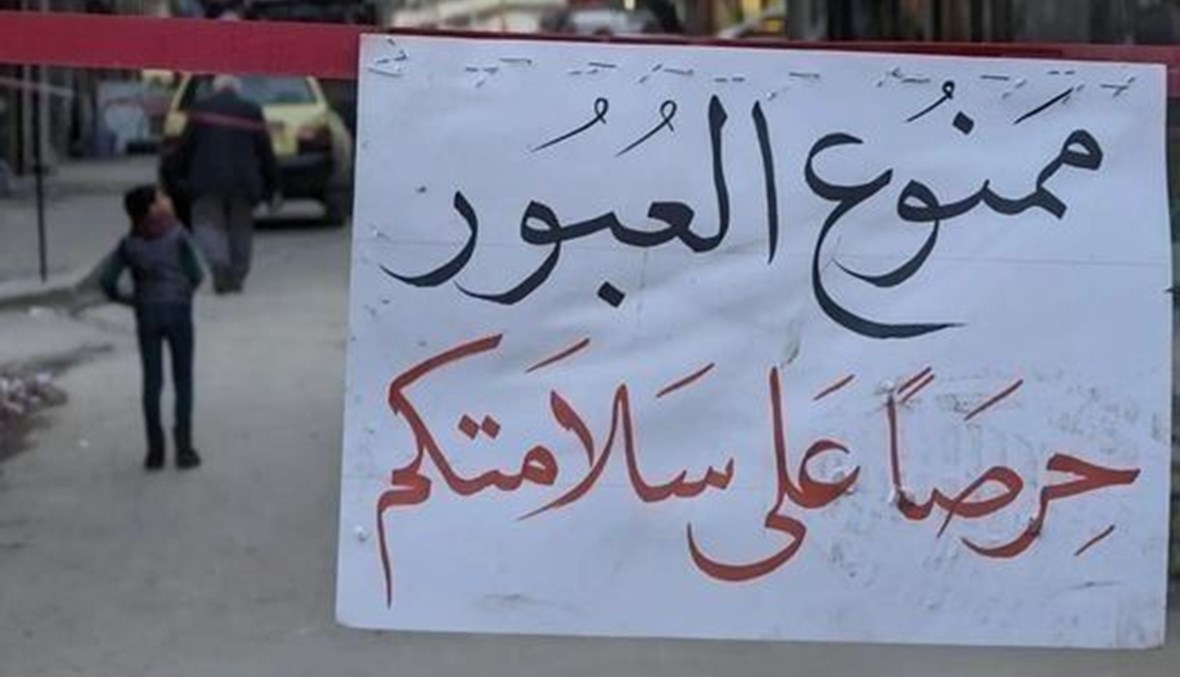 مَمنوُع العُبُور
حِرَصاً عَلى سَلامَتكم